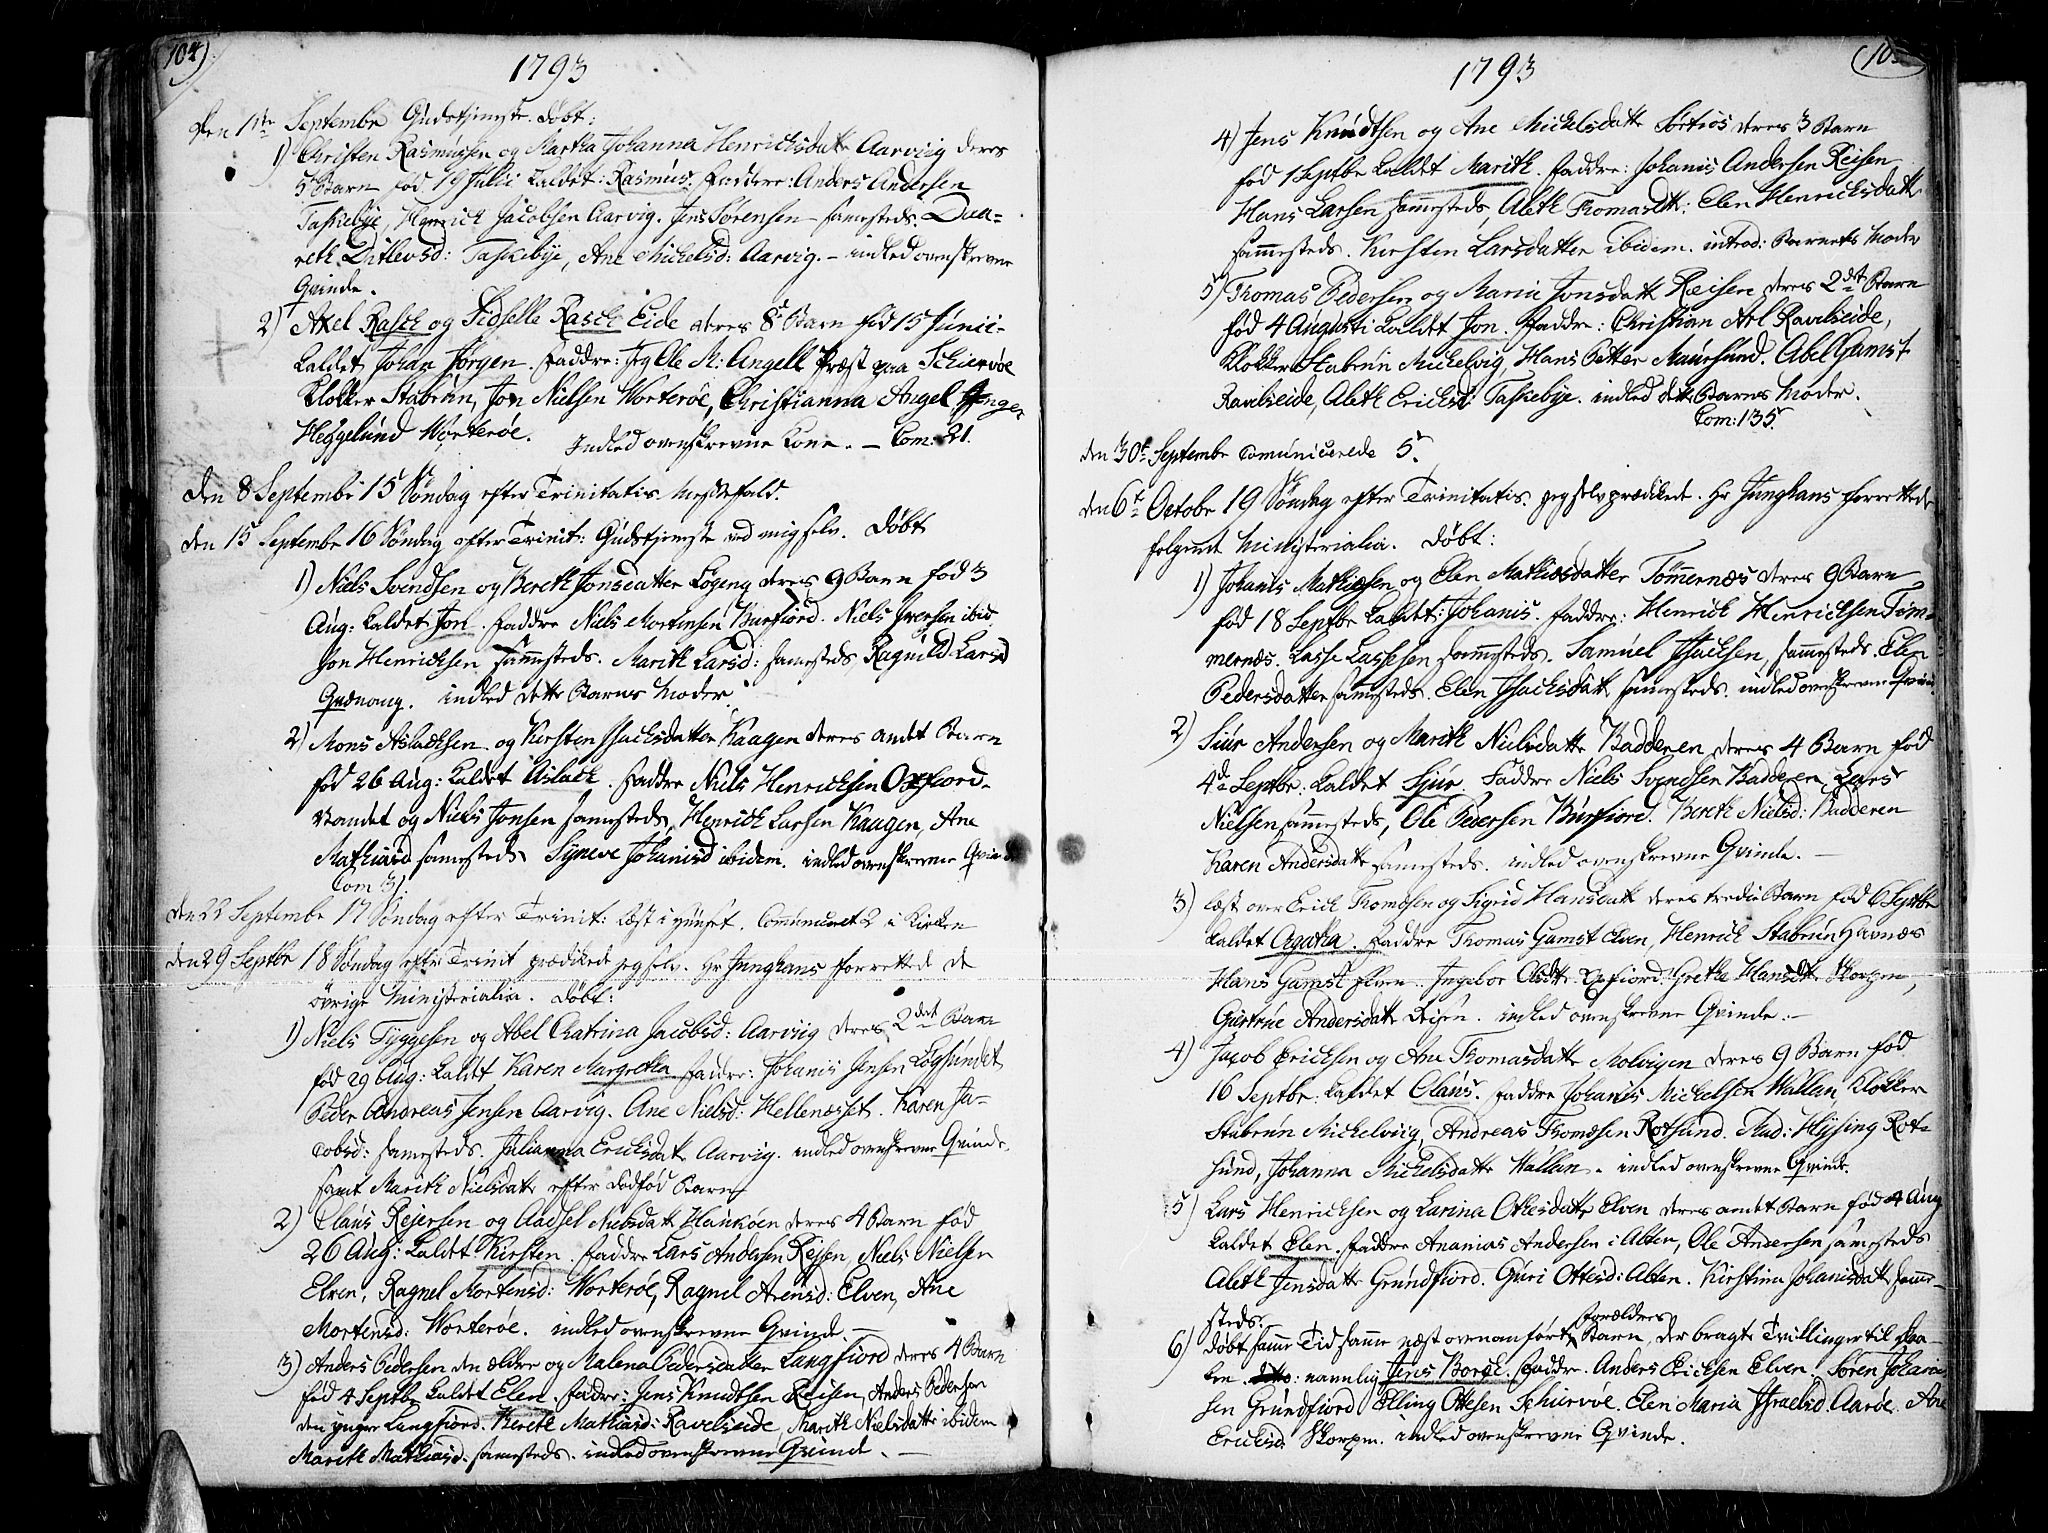 104)
1793
Den 1ste Septembr Gudstjeneste. Døbt:
1) Christen Rasmussen og Martha Johanna Henrichsdatter Aarviig deres
5 Barn fød 19 Julii kaldet: Rasmus. Faddere: Anders Andersen
Taskebye, Henrich Jacobsen Aarvig. Jens Sørensen samesteds.
Ditlevsd: Taskebye, Ane Michelsd: Aarvig. – indled ovenskrevne
Qvinde.
2) Axel Rasch og Sidselle Rasch Eide deres 8 Barn fød 15 Junii
kaldet Johan Jørgen. Faddre: Jeg Ole M: Angell Præst paa Schiervøe
Klokker Stabrun, Jon Nielsen Worterøe, Christianna Angel
Heggelund Worterøe. Indled ovenskrevne Kone. – Com: 21.
Den 8 Septembr 15 Søndag efter Trinitatis Messefald.
Den 15 Septembr 16 Søndag efter Trinit: Gudstjeneste ved mig selv. Døbt
1) Niels Svendsen og Bereth Jonsdatter Løgeng deres 9 Barn fød 3
Aug: kaldet Jon. Faddre Niels Mortensen Burfiord. Niels Iversen ibid
Jon Henrichsen sammesteds. Marith Larsd: samesteds Ragnild Larsd
Qvænang. indled dette Barns Moder.
2) Mons Aslachsen og Kirsten Isachsdatter Kaagen deres andet Barn
fød 26 Aug: kaldet Aslach. Faddre Niels Henrichsen Oxfiord-
Bandet og Niels Jonsen samesteds, Henrich Larsen Kaagen, Ane
Mathiasd samesteds Syneve Johanisd ibidem. indled ovenskrevne Qvinde
Com 31.
den 22 Septembr 17 Søndag efter Trinit: Læst i Huuset. Communicert 2 i Kirken
den 29 Septbr 18 Søndag efter Trinit prædikede jeg selv. Hr Junghans forrettede de
øvrige Ministerialia. Døbt:
1) Niels Tyggesen og Abel Catrina Jacobsd: Aarviig deres 2det Barn
fød 29 Aug: kaldet Karen Margretha Faddre: Johanis Jensen Løgsundet
Peder Andreas Jensen Aarvig. Ane Nielsd: Hellenæsset. Karen Ja-
cobsd: samesteds. Julianna Ericksdatter Aarvig. indled ovenskrevne Qvinde.
samt Marith Nielsdatter efter dødfød Barn
2) Claus Rejersen og Aadsel Nielsdatter Haukøen deres 4 Barn fød
26 Aug: kaldet Kirsten. Faddre Lars Andersen Rejsen, Niels Nielsen
Elven, Ragnel Mortensd: Worterøe, Ragnel Arensd: Elven, Ane
Mortensd: Worterøe. indled ovenskrevne Qvinde. –
3) Anders Pedersen den ældre og Malena Pedersdatter Langfiord deres 4 Barn
fød 4 Septbr kaldet Elen. Faddre: Jens Knudtsen Reisen, Anders Pedersen
den ynger Langfiord. Bereth Mathiasd: Ravelseide, Marith Nielsdatter ibidem
Marith Mathiasd. samesteds. indled ovenskrevne Qvinde. –
1793
4) Jens Knudtsen og Ane Michelsdatter deres 3 Barn
fød 1 Septbr kaldet Marith. Faddre: Johanis Andersen Reisen
Hans Larsen sammesteds, Aleth Thomasdtr: Elen Henrichsdatter
sammesteds. Kirsten Larsdatter ibidem. introd: Barnets Moder
5) Thomas Pedersen og Maria Jonsdatter Reisen deres 2det Barn
fød 4 Augusti kaldet Jon. Faddre: Christian Arl Ravelseide,
Klokker Stabrun Michelvig, Hans Petter Maursund. Abel Gamst
Ravelseide, Aleth Ericksd Taskebye. indled dette Barns Moder.
Com: 135.
den 30t Septembr Comunicerede 5.
den 6t Octobr 19 Søndag efter Trinitatis. Jeg selv prædikede. Hr Junghans forrettede
følgende Ministerialia. Døbt:
1) Johanis Mathisen og Elen Mathisdatter Tømmernæs deres 9 Barn
fød 18 Septbr kaldet: Johanis. Faddre: Henrich Henrichsen Tøm-
mernæs. Lasse Lassesen sammesteds. Samuel Isachsen, sammesteds. Elen
Pedersdatter sammesteds. Elen Isachsdatter samesteds. indled ovenskrevne Qvinde.
2) Siur Andersen og Marith Nielsdatter Badderen deres 4 Barn fød
4de Septbr. kaldet Sjur. Faddre Niels Svendsen Badderen, Lars
Nielsen sammesteds, Ole Pedersen Burfiord. Bereth Nielsd: Badderen
Karen Andersdatter samesteds. indled ovenskrevne Qvinde. –
3) læst over Erich Thomesen og Sigrid Hansdatter deres tredie Barn fød 6 Septbr
kaldet Agatha. Faddre Thomas Gamst Elven, Henrich Stabrun Havnæs
Hans Gamst Elven. Ingebor Olsdtr. Oxfiord. Gretha Hansdtr Skorpen,
Giertrue Andersdatter Reisen. indled ovenskrevne Qvinde. –
4) Jacob Ericksen og Ane Thomasdatter Molvigen deres 9 Barn fød
16 Septbr: kaldet Claus. Faddre Johanis Michelsen Wallan, Klokker
Stabrun Michelviig, Andreas Thomesen Rotsund. Mad: Hysing Rot-
sund, Johanna Michelsdatter Wallan. indled ovenskrevne Qvinde.
5) Lars Henrichsen og Larina Ottesdatter Elven deres andet Barn fød 4 Aug
kaldet Elen. Faddre Ananias Andersen i Alten, Ole Andersen samesteds
Aleth Jensdatter Grundfiord. Guri Ottesd: Alten. Kirstina Johanisdatter samme-
steds.
6) Døbt samme Tid samme næst ovenanførte Forældres Barn, der bragte Tvillinger til
: namnlig Jens Borch. Faddre. Anders Ericksen Elven. Søren Johan-
sen Grundfiord Elling Ottesen Schiervøe. Elen Maria Israelsd. Aarøe. Ane
Ericksd Skorpen. indled ovenskrevne Qvinde.